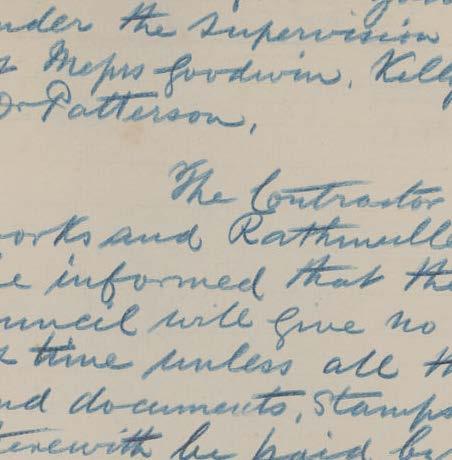 nder the supervision
Messrs Goodwin, Kelly
Dr Patterson,
The Contractor
works and Rathmulle
be informed that the
ouncil will give no
time unless all th
nd documents, Stamps
therewith be paid by